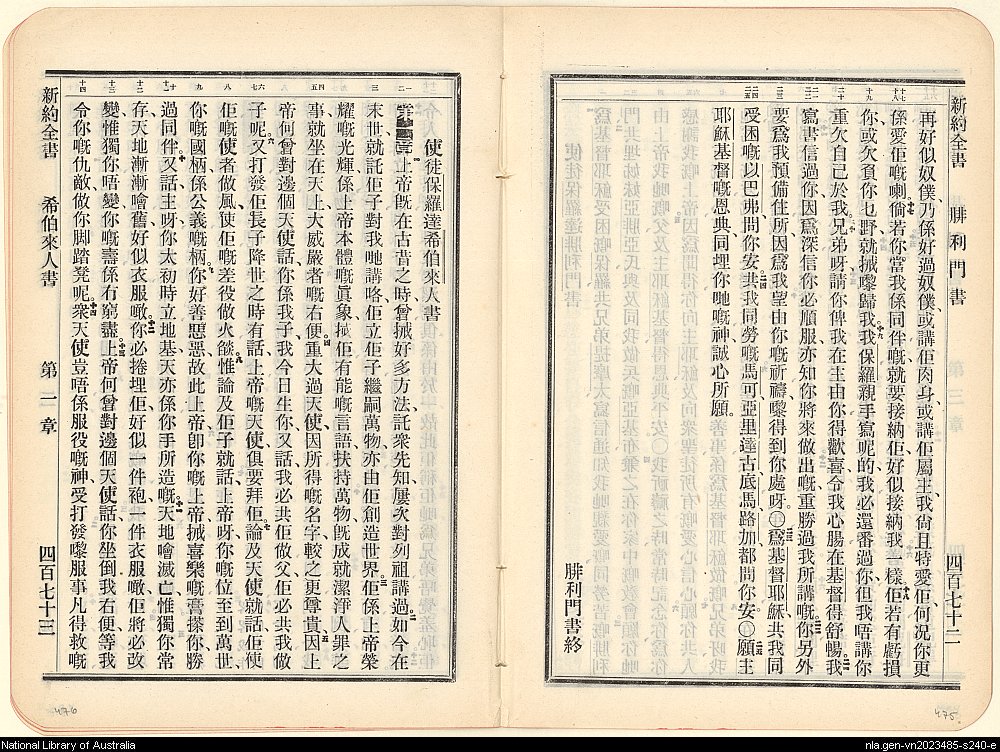 新約全書　腓利門書　四百七十二
再好似奴僕、乃係好過奴僕、或講佢肉身、或講佢屬主、我尙且特愛佢、何況你更
係愛佢嘅喇。倘若你當我係同伴嘅、就要接納佢、好似接納我一樣。佢若有虧損
你、或欠負你乜野、就搣嚟歸我。我保羅親手寫呢的、我必還番過你、但我唔講你
重欠自己於我。兄弟呀、請你俾我在主由你得歡喜、令我心腸在基督得舒暢。我
寫書信過你、因爲深信你必順服、亦知你將來做出嘅、重勝過我所講嘅。你另外
要爲我預備住所、因爲我望由你嘅祈禱、嚟得到你處呀。〇爲基督耶穌共我同
受困嘅以巴弗問你安。共我同勞嘅、馬可、亞里達古、底馬、路加、都問你安。〇願主
耶穌基督嘅恩典、同埋你哋嘅神、誠心所願。
腓利門書終
475
新約全書　希伯來人書　第一章　四百七十三
使徒保羅達希伯來人書
第一章　上帝旣在古昔之時、曾搣好多方法、託衆先知屢次對列祖講過、如今在
末世、就託佢子對我哋講咯、佢立佢子繼嗣萬物、亦由佢創造世界。佢係上帝榮
耀嘅光輝、係上帝本體嘅眞象、搣佢有能嘅言語、扶持萬物、旣成就潔淨人罪之
事、就坐在天上大威嚴者嘅右便。重大過天使、因所得嘅名字、較之更尊貴。因上
帝何曾對邊個天使話、你係我子、我今日生你、又話、我必共佢做父、佢必共我做
子呢。又打發佢長子降世之時、有話、上帝嘅天使俱要拜佢。論及天使就話、佢使
佢嘅使者做風、使佢嘅差役做火燄。惟論及佢子就話、上帝呀、你嘅位至到萬世、
你嘅國柄、係公義嘅柄。你好善惡惡、故此上帝、卽你嘅上帝、搣喜樂嘅膏搽你、勝
過同伴。又話、主呀、你太初時立地基、天亦係你手所造嘅。天地噲滅亡、惟獨你常
存、天地漸漸噲舊、好似衣服噉。你必捲埋佢、好似一件袍、一件衣服噉、佢將必改
變、惟獨你唔變、你嘅壽係冇窮盡。上帝何曾對邊個天使話、你坐倒我右便、等我
令你嘅仇敵做你脚踏凳呢。衆天使豈唔係服役嘅神、受打發嚟服事凡得救嘅
476
National Library of Australia
nla.gen-vn2023485-s240-e